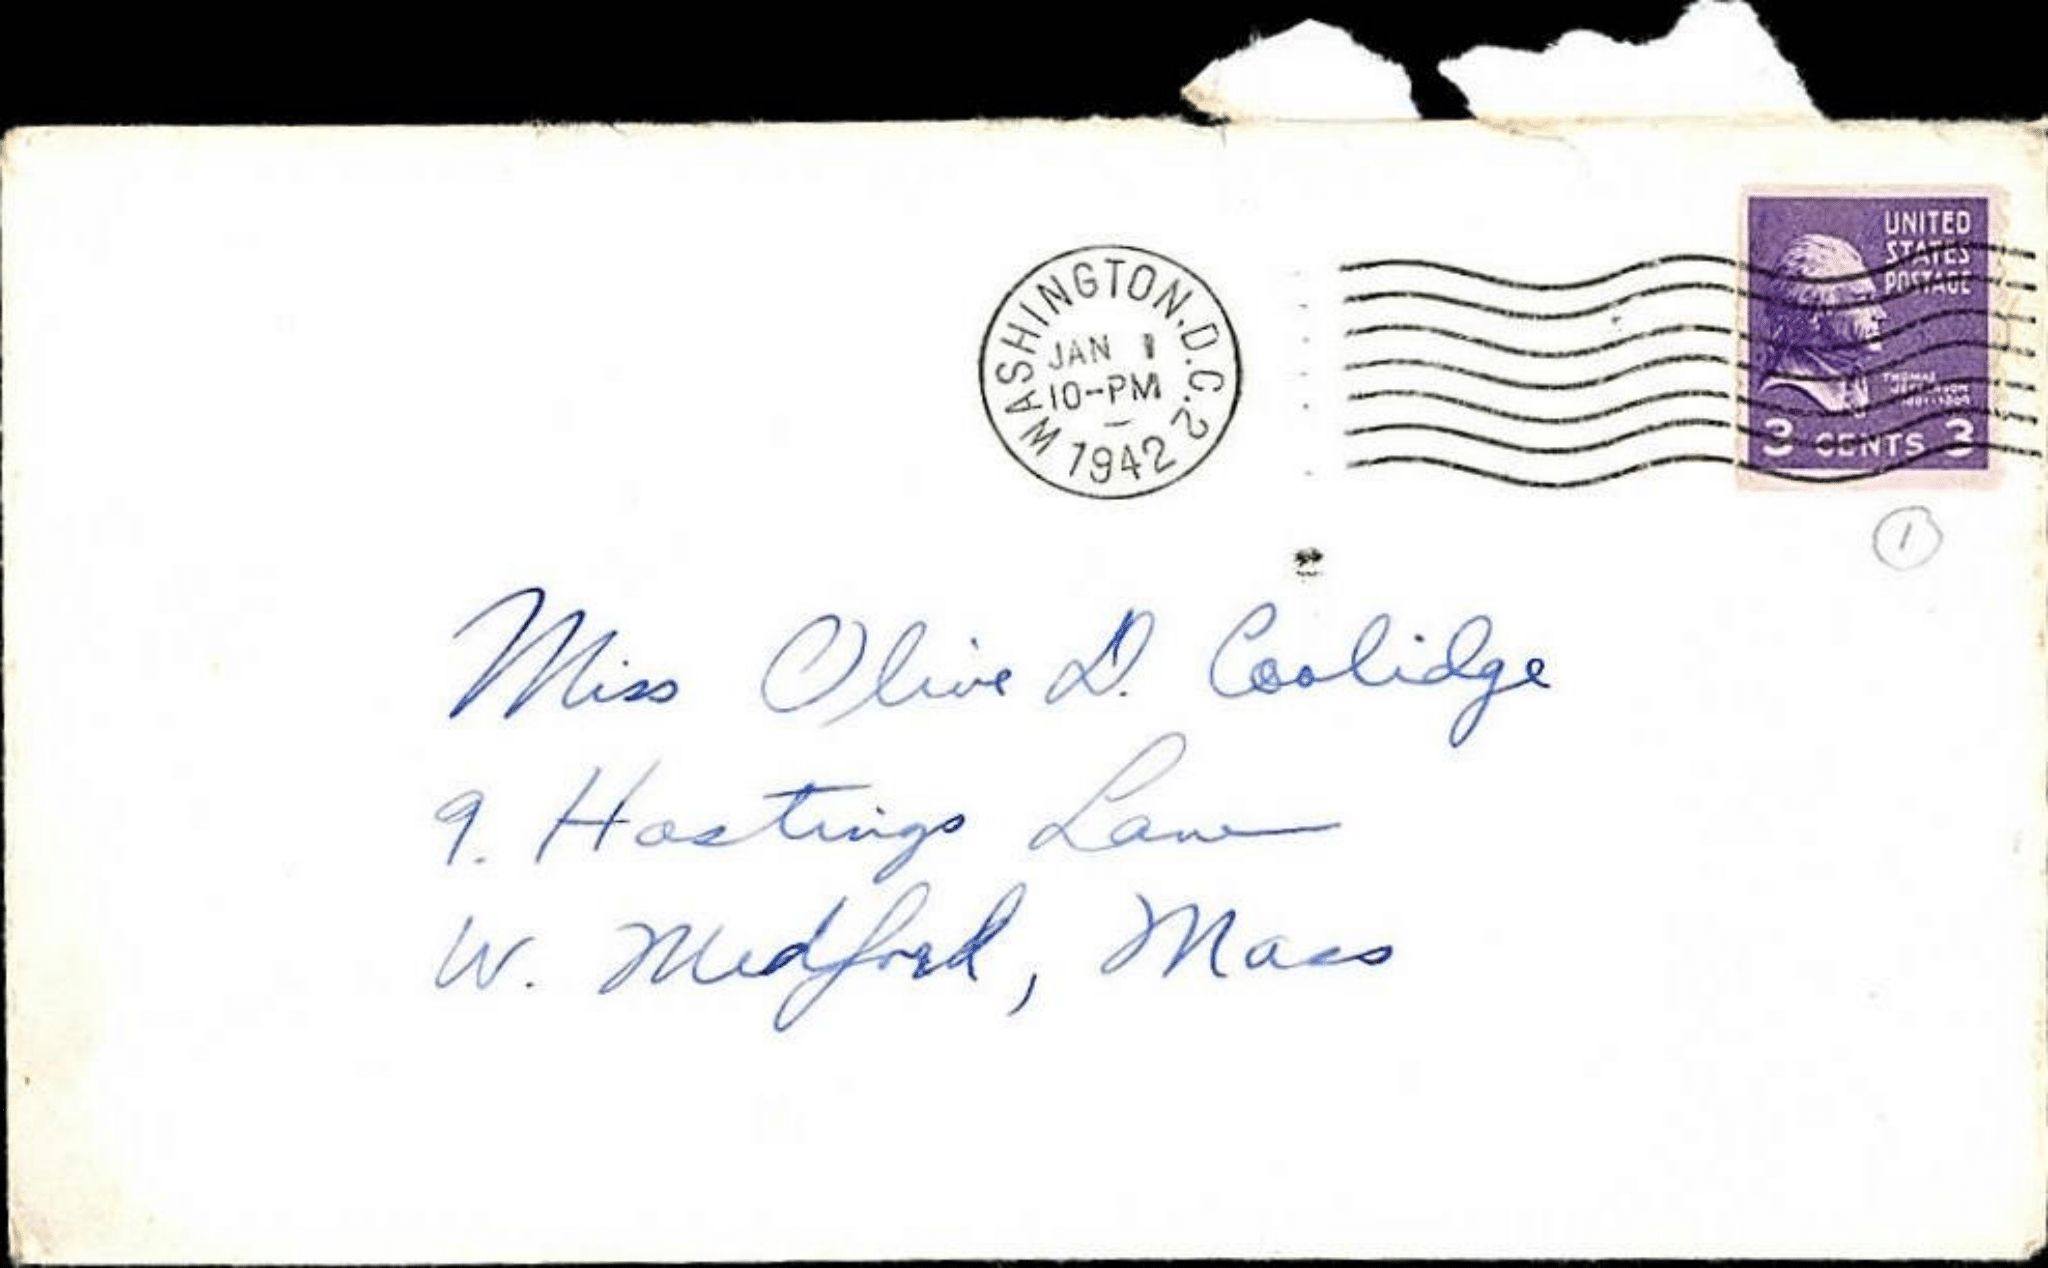 WASHINGTON, D.C. 2
JAN 1
10-PM
1942
UNITED
STATES
POSTAGE
THOMAS
JEFFERSON
1801-1809
3 CENTS 3
1
Miss Olive D. Coolidge
9. Hastings Lane
W. Medford, Mass